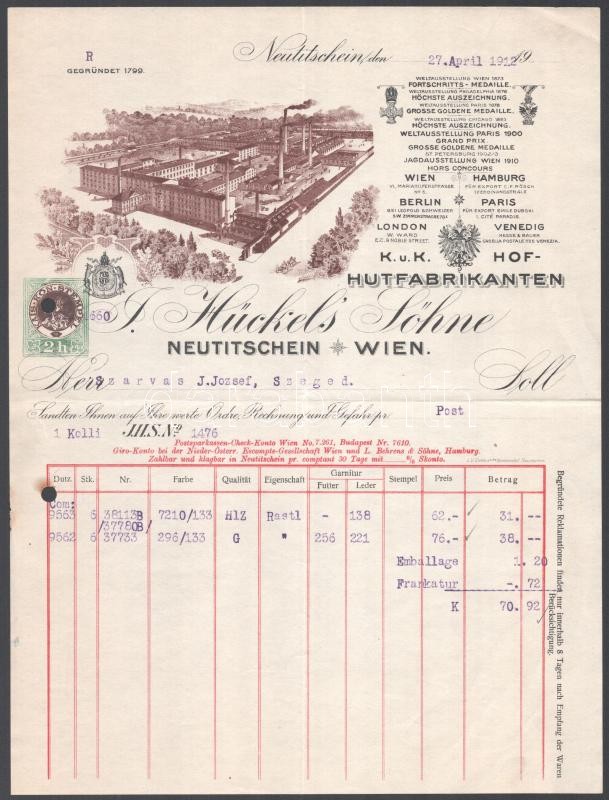 R
GEGRÜNDET 1799.
Neutitschein, den 27. April 1912 19
WELTAUSSTELLUNG WIEN 1873
FORTSCHRITTS-MEDAILLE.
WELTAUSSTELLUNG PHILADELPHIA 1876
HÖCHSTE AUSZEICHNUNG.
WELTAUSSTELLUNG PARIS 1878
GROSSE GOLDENE MEDAILLE.
WELTAUSSTELLUNG CHICAGO 1893
HÖCHSTE AUSZEICHNUNG.
WELTAUSSTELLUNG PARIS 1900
GRAND PRIX
GROSSE GOLDENE MEDAILLE
ST PETERSBURG 1902/3
JAGDAUSSTELLUNG WIEN 1910
HORS CONCOURS
WIEN HAMBURG
VI, MARIAHILFERSTRASSE FÜR EXPORT C.F. PÖSCH
FERDINANDSTRALE
BERLIN PARIS
BEI LEOPOLD SCHWEIZER FÜR EXPORT EMILE DUBSKI
S.W. ZIMMERSTRASSE 79/1 1. CITÉ PARADIS.
LONDON VENEDIG
W. WARD HESSE & BAUER
E.C. 9 NOBLE STREET. CASELLA POSTALE 725 VENEZIA.
K.u.K. HOF-
HUTFABRIKANTEN
2 h
1660
J. Hückel's Söhne
NEUTITSCHEIN WIEN.
Herr Szarvas J.Jozsef, Szeged. Soll
Sandten Ihnen auf Ihre werte Ordre, Rechnung und Gefahr pr. Post
1 Kolli J.H.S. No 1476
Postsparkassen-Check-Konto Wien No. 7.261, Budapest Nr. 7610.
Giro-Konto bei der Nieder-Österr. Escompte-Gesellschaft Wien und L. Behrens & Söhne, Hamburg.
Zahlbar und klagbar in Neutitschein pr. comptant 30 Tage mit % Skonto.
Dutz. Stk. Nr. Farbe Qualität Eigenschaft Garnitur Stempel Preis Betrag
Futter Leder
Com:
9563 6 38113B 7210/133 HlZ Rastl - 138 62.- 31. --
/37780B/
9562 6 37733 296/133 G " 256 221 76.- 38. --
Emballage 1. 20
Frankatur -. 72
K 70. 92
Begründete Reklamationen finden nur innerhalb 8 Tagen nach Empfang der Waren
Berücksichtigung.